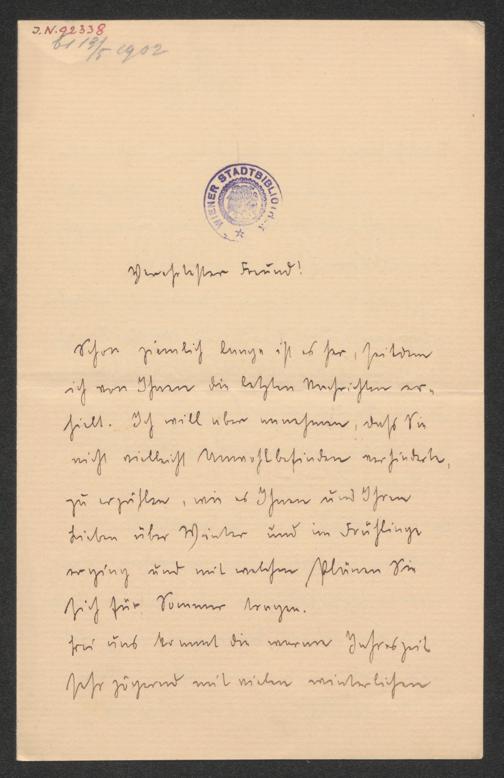 J.N. 92338
61 13/5 1902
WIENER STADTBIBLIOTHEK
Verehrtester Freund!
Schon ziemlich lange ist es her, seitdem
ich von Ihnen die letzten Nachrichten er-
hielt. Ich will aber annehmen, dass Sie
nicht vielleicht Unwohlbefinden verhinderte,
zu erzählen, wie es Ihnen und Ihren
Lieben über Winter und im Frühlinge
erging und mit welchen Plänen Sie
sich für Sommer tragen.
Bei uns kommt die warme Jahreszeit
sehr zögernd mit vielen winterlichen